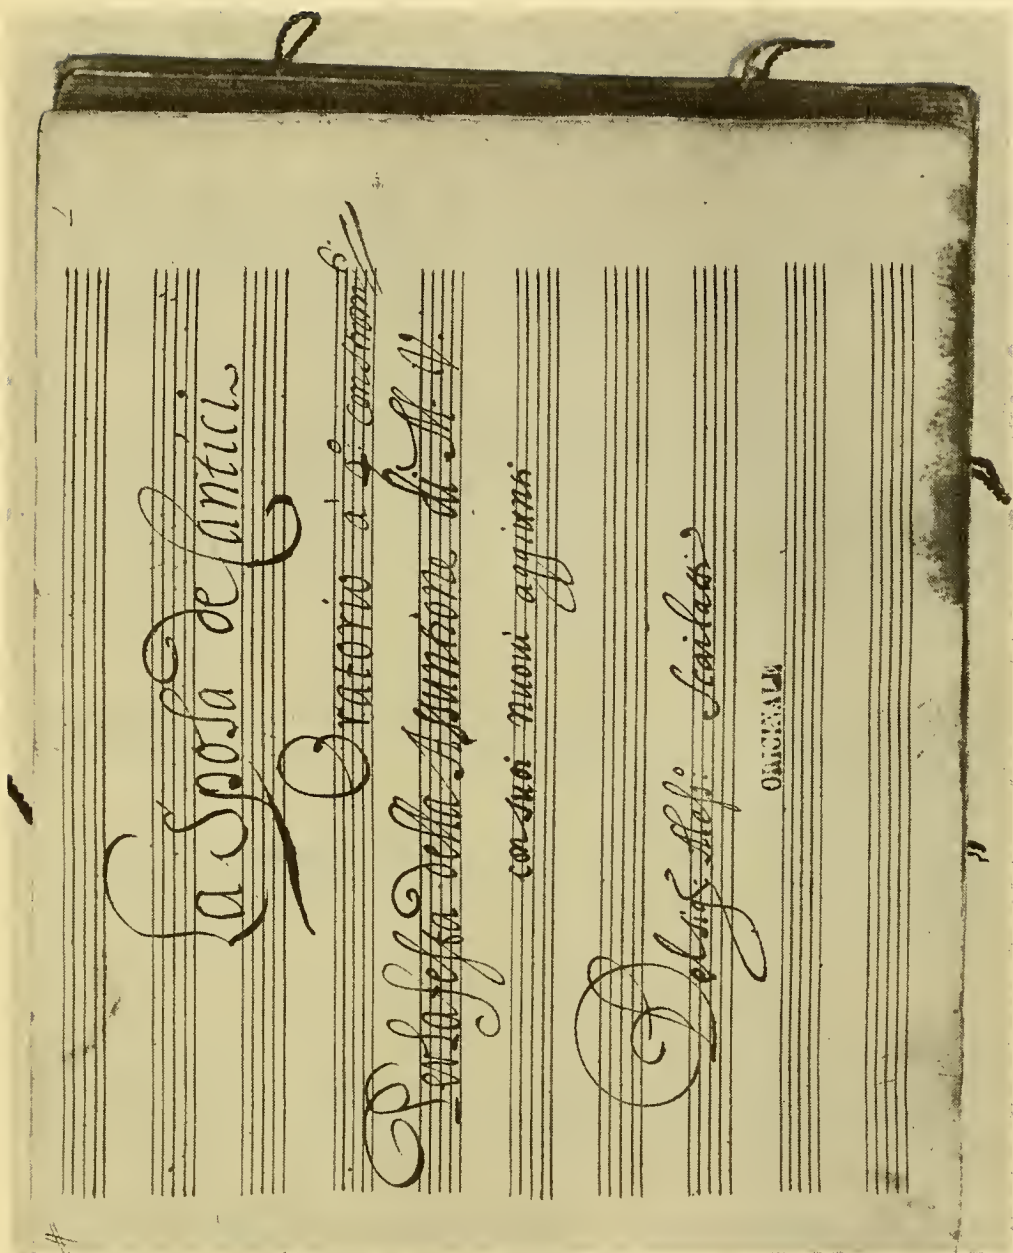 La Sposa de Cantici
Oratorio à con strom.ti
Per la festa della Assuntione di M. V.
con suoi nuovi aggiunti
Del Sig: Aless:o Scarlatti
ORIGINALE